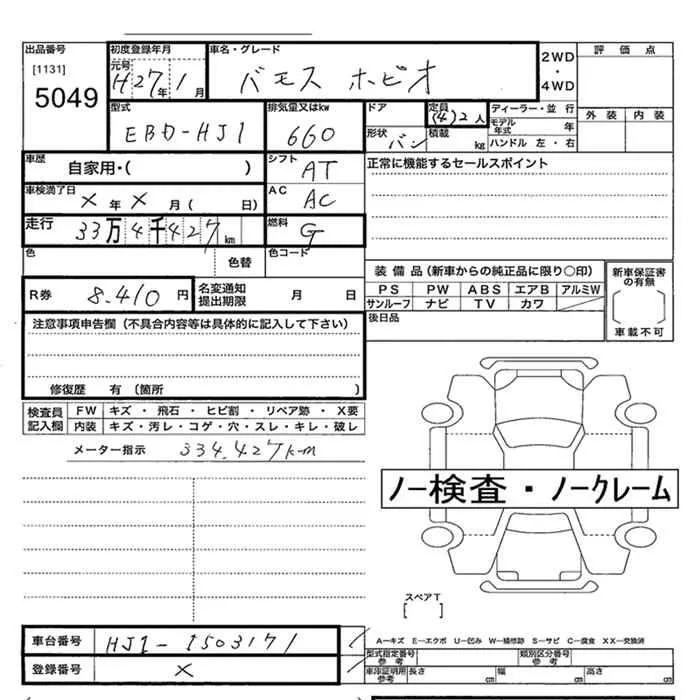 出品番号
[1131]
5049
初度登録年月
元号
H27年1月
車名・グレード
バモス ホビオ
2WD
・
4WD
評価点
外装 内装
型式
EBD-HJ1
排気量又はkw
660
ドア
形状 バン
定員
(4)2人
積載
kg
ディーラー・並行
モデル年式 年
ハンドル 左・右
車歴
自家用・( )
シフト
AT
正常に機能するセールスポイント
車検満了日
×年×月( 日)
AC
AC
走行
33万4千427km
燃料
G
色
色替
色コード
装備品(新車からの純正品に限り○印)
PS PW ABS エアB アルミW
サンルーフ ナビ TV カワ
新車保証書の有無
車載不可
R券
8.410円
名変通知
提出期限
月 日
後日品
注意事項申告欄(不具合内容等は具体的に記入して下さい)
修復歴 有(箇所 )
検査員
記入欄
FW キズ・飛石・ヒビ割・リペア跡・X要
内装 キズ・汚レ・コゲ・穴・スレ・キレ・破レ
メーター指示 334.427km
ノー検査・ノークレーム
スペアT
[ ]
車台番号
HJ1-1503171
登録番号
×
A-キズ E-エクボ U-凹み W-補修跡 S-サビ C-腐食 XX-交換済
型式指定番号
参考
類別区分番号
参考
車庫証明用
参考
長さ cm
幅 cm
高さ cm